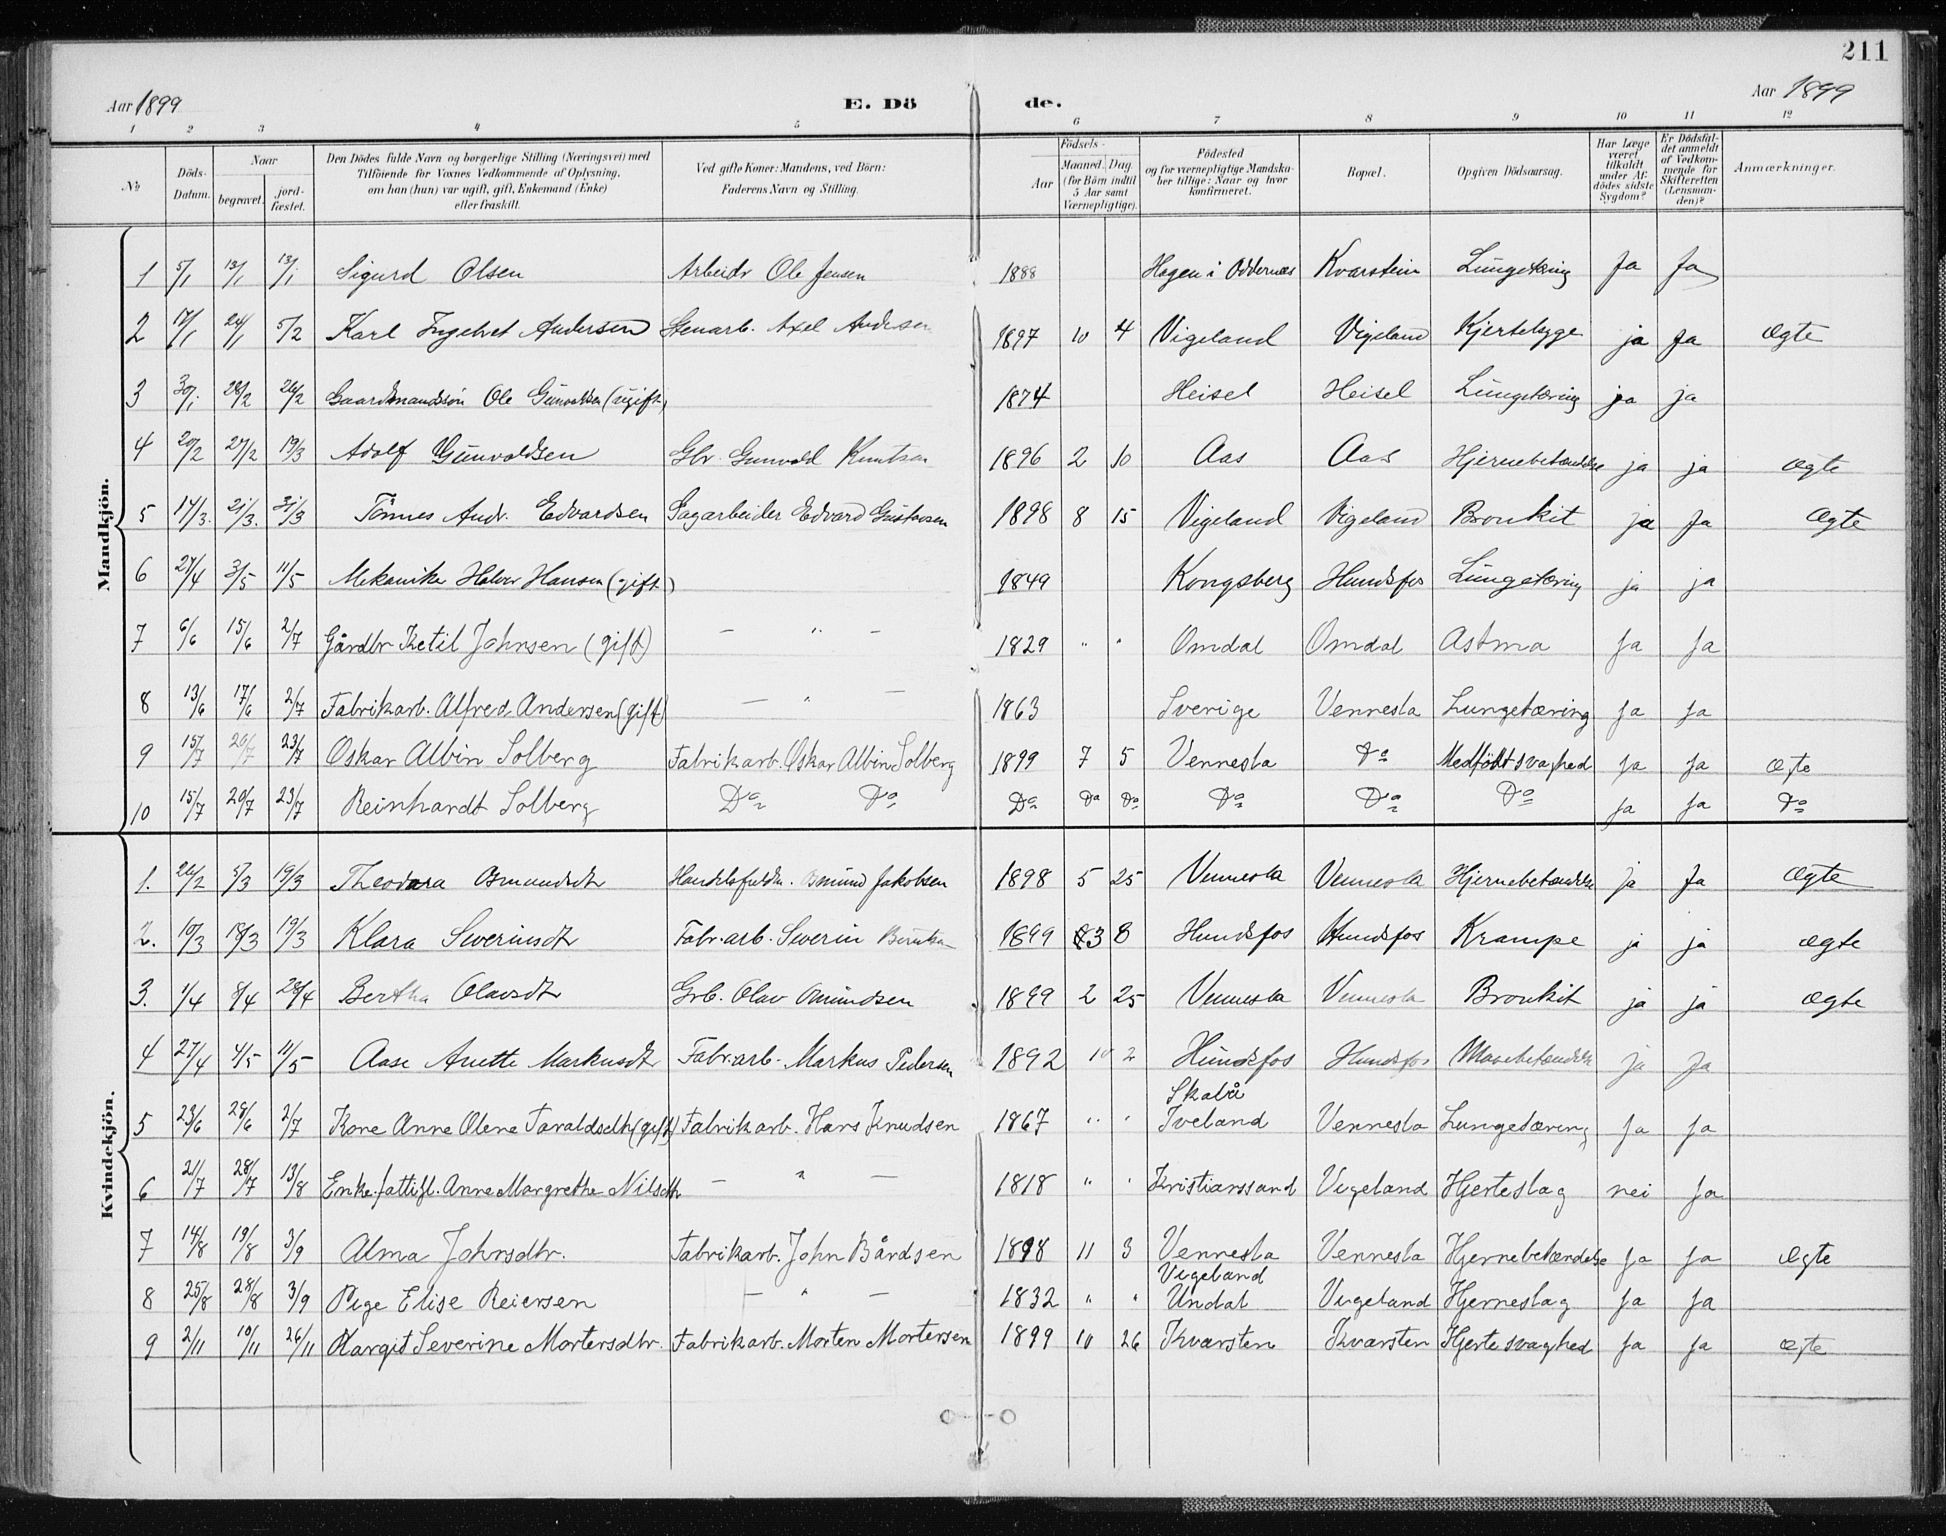 211
Aar 1899 E. Dö de. Aar 1899
1 2 3 4 5 6 7 8 9 10 11 12
№ Döds-Datum. Naar begravet. jord-fæstet. Den Dödes fulde Navn og borgerlige Stilling (Næringsvei) med Tilföiende for Voxnes Vedkommende af Oplysning, om han (hun) var ugift, gift, Enkemand (Enke) eller fraskilt. Ved gifte Koner: Mandens, ved Börn: Faderens Navn og Stilling. Födsels- Aar Maaned. Dag (for Börn indtil 5 Aar samt Værnepligtige). Födested og for værnepligtige Mandskaber tillige: Naar og hvor konfirmeret. Bopæl. Opgiven Dödsaarsag. Har Læge været tilkaldt under Afdödes sidste Sygdom? Er Dödsfaldet anmeldt af Vedkommende for Skifteretten (Lensmanden)? Anmærkninger.
Mandkjön.
1 5/1 13/1 13/1 Sigurd Olsen Arbeidr Ole Jensen 1888 Hagen i Oddernæs Kvarstein Lungetæring Ja Ja
2 17/1 24/1 5/2 Karl Ingelvet Andersen Stenarb. Axel Andersen 1897 10 4 Vigeland Vigeland Kjertelsyge ja Ja Ægte
3 30/1 28/2 26/2 Gaardmandssön Ole Gunvoldsen (ugift) 1874 Heisel Heisel Lungetæring ja ja
4 20/2 27/2 19/3 Adolf Gunvoldsen Gbr. Gunvold Knutsen 1896 2 10 Aas Aas Hjernebetændelse ja ja ægte
5 14/3. 21/3. 31/3 Tönnes Andr. Edvardsen Sagarbeider Edvard Gustavsen 1898 8 15 Vigeland Vigeland Bronkit ja Ja Ægte
6 27/4 3/5 11/5 Mekaniker Halvor Hansen (gift) 1849 Kongsberg Hunsfos Lungetæring ja ja
7 6/6 15/6 2/7 Gårdbr Ketil Johnsen (gift) — " — 1829 " " Omdal Omdal Astma Ja Ja
8 13/6 17/6 2/7 Fabrikarb. Alfred Andersen (gift) — " — 1863 Sverige Vennesla Lungetæring Ja Ja
9 15/7 20/7 23/7 Oskar Albin Solberg Fabrikarb. Oskar Albin Solberg 1899 7 5 Vennesla Do Medfödt svaghed Ja Ja ægte
10 15/7 20/7 23/7 Reinhardt Solberg Do Do Do Do Do Do Do Do Ja Ja Do
Kvindekjön.
1. 26/2 5/3 19/3 Theodora Osmundsdt Handelsfuldm. Osmund Jakobsen 1898 5 25 Vennesla Vennesla Hjernebetændelse ja Ja Ægte
2. 10/3 18/3 19/3 Klara Severinsdt Fabr. arb. Severin 1899 3 8 Hunsfos Hunsfos Krampe ja ja ægte
3. 1/4 8/4 28/4 Bertha Olavsdt Grb. Olav Omundsen 1899 2 25 Vennesla Vennesla Bronkit ja ja ægte
4 27/4 4/5 11/5 Aase Anette Markusdt Fabr. arb. Markus Pedersen 1892 10 2 Hunsfos Hunsfos Mavebetændelse ja Ja
5 23/6 29/6 2/7 Kone Anne Olene Taraldsdtr (gift) Fabrikarb. Hans Knudsen 1867 " " Skalrå Iveland Vennesla Lungetæring Ja Ja
6 21/7 28/7 13/8 Enke. fattigl. Anne Margrethe Nilsdtr — " — 1818 " " Kristianssand Vigeland Hjerteslag nei Ja
7 14/8 19/8 3/9 Alma Johnsdtr. Fabrikarb. John Bårdsen 1898 11 3 Vennesla Vennesla Hjernebetændelse Ja Ja Ægte
8 25/8 28/8 3/9 Pige Elise Reiersen — " — 1832 " " Vigeland Undal Vigeland Hjerneslag Ja Ja
9 2/11 10/11 26/11 Margit Severine Mortensdtr. Fabrikarb. Morten Mortensen 1899 10 26 Kvarsten Kvarsten Hjertesvaghed Ja Ja ægte